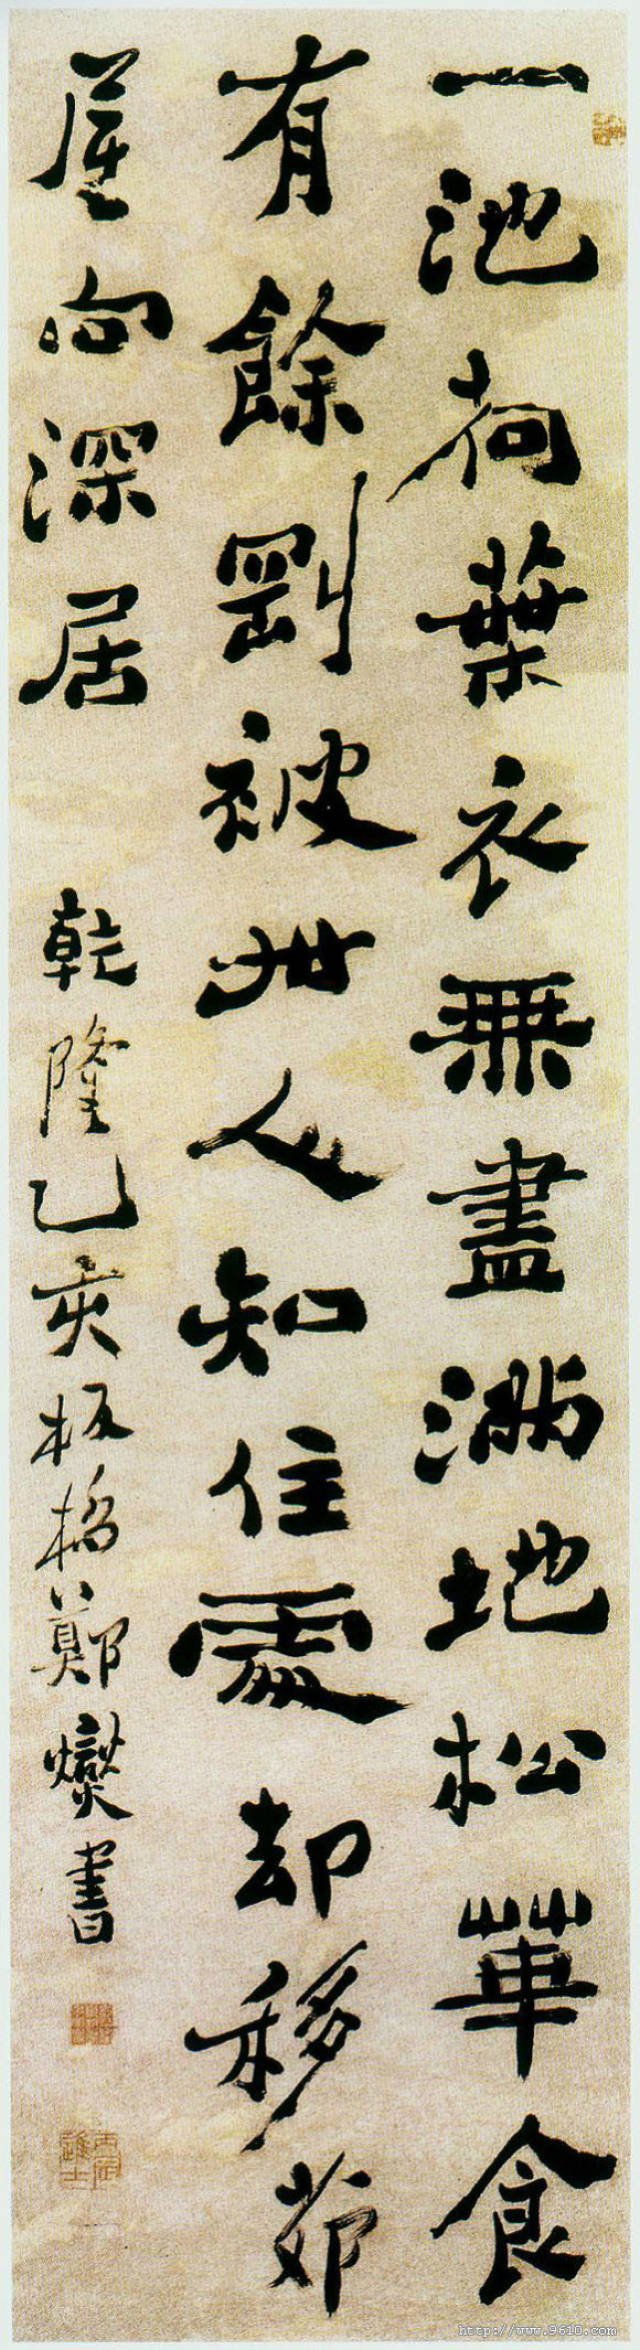 一池荷葉衣無盡滿地松華食
有餘剛被世人知住處却移茆
屋向深居 乾隆乙亥板橋鄭燮書
http://www.9610.com